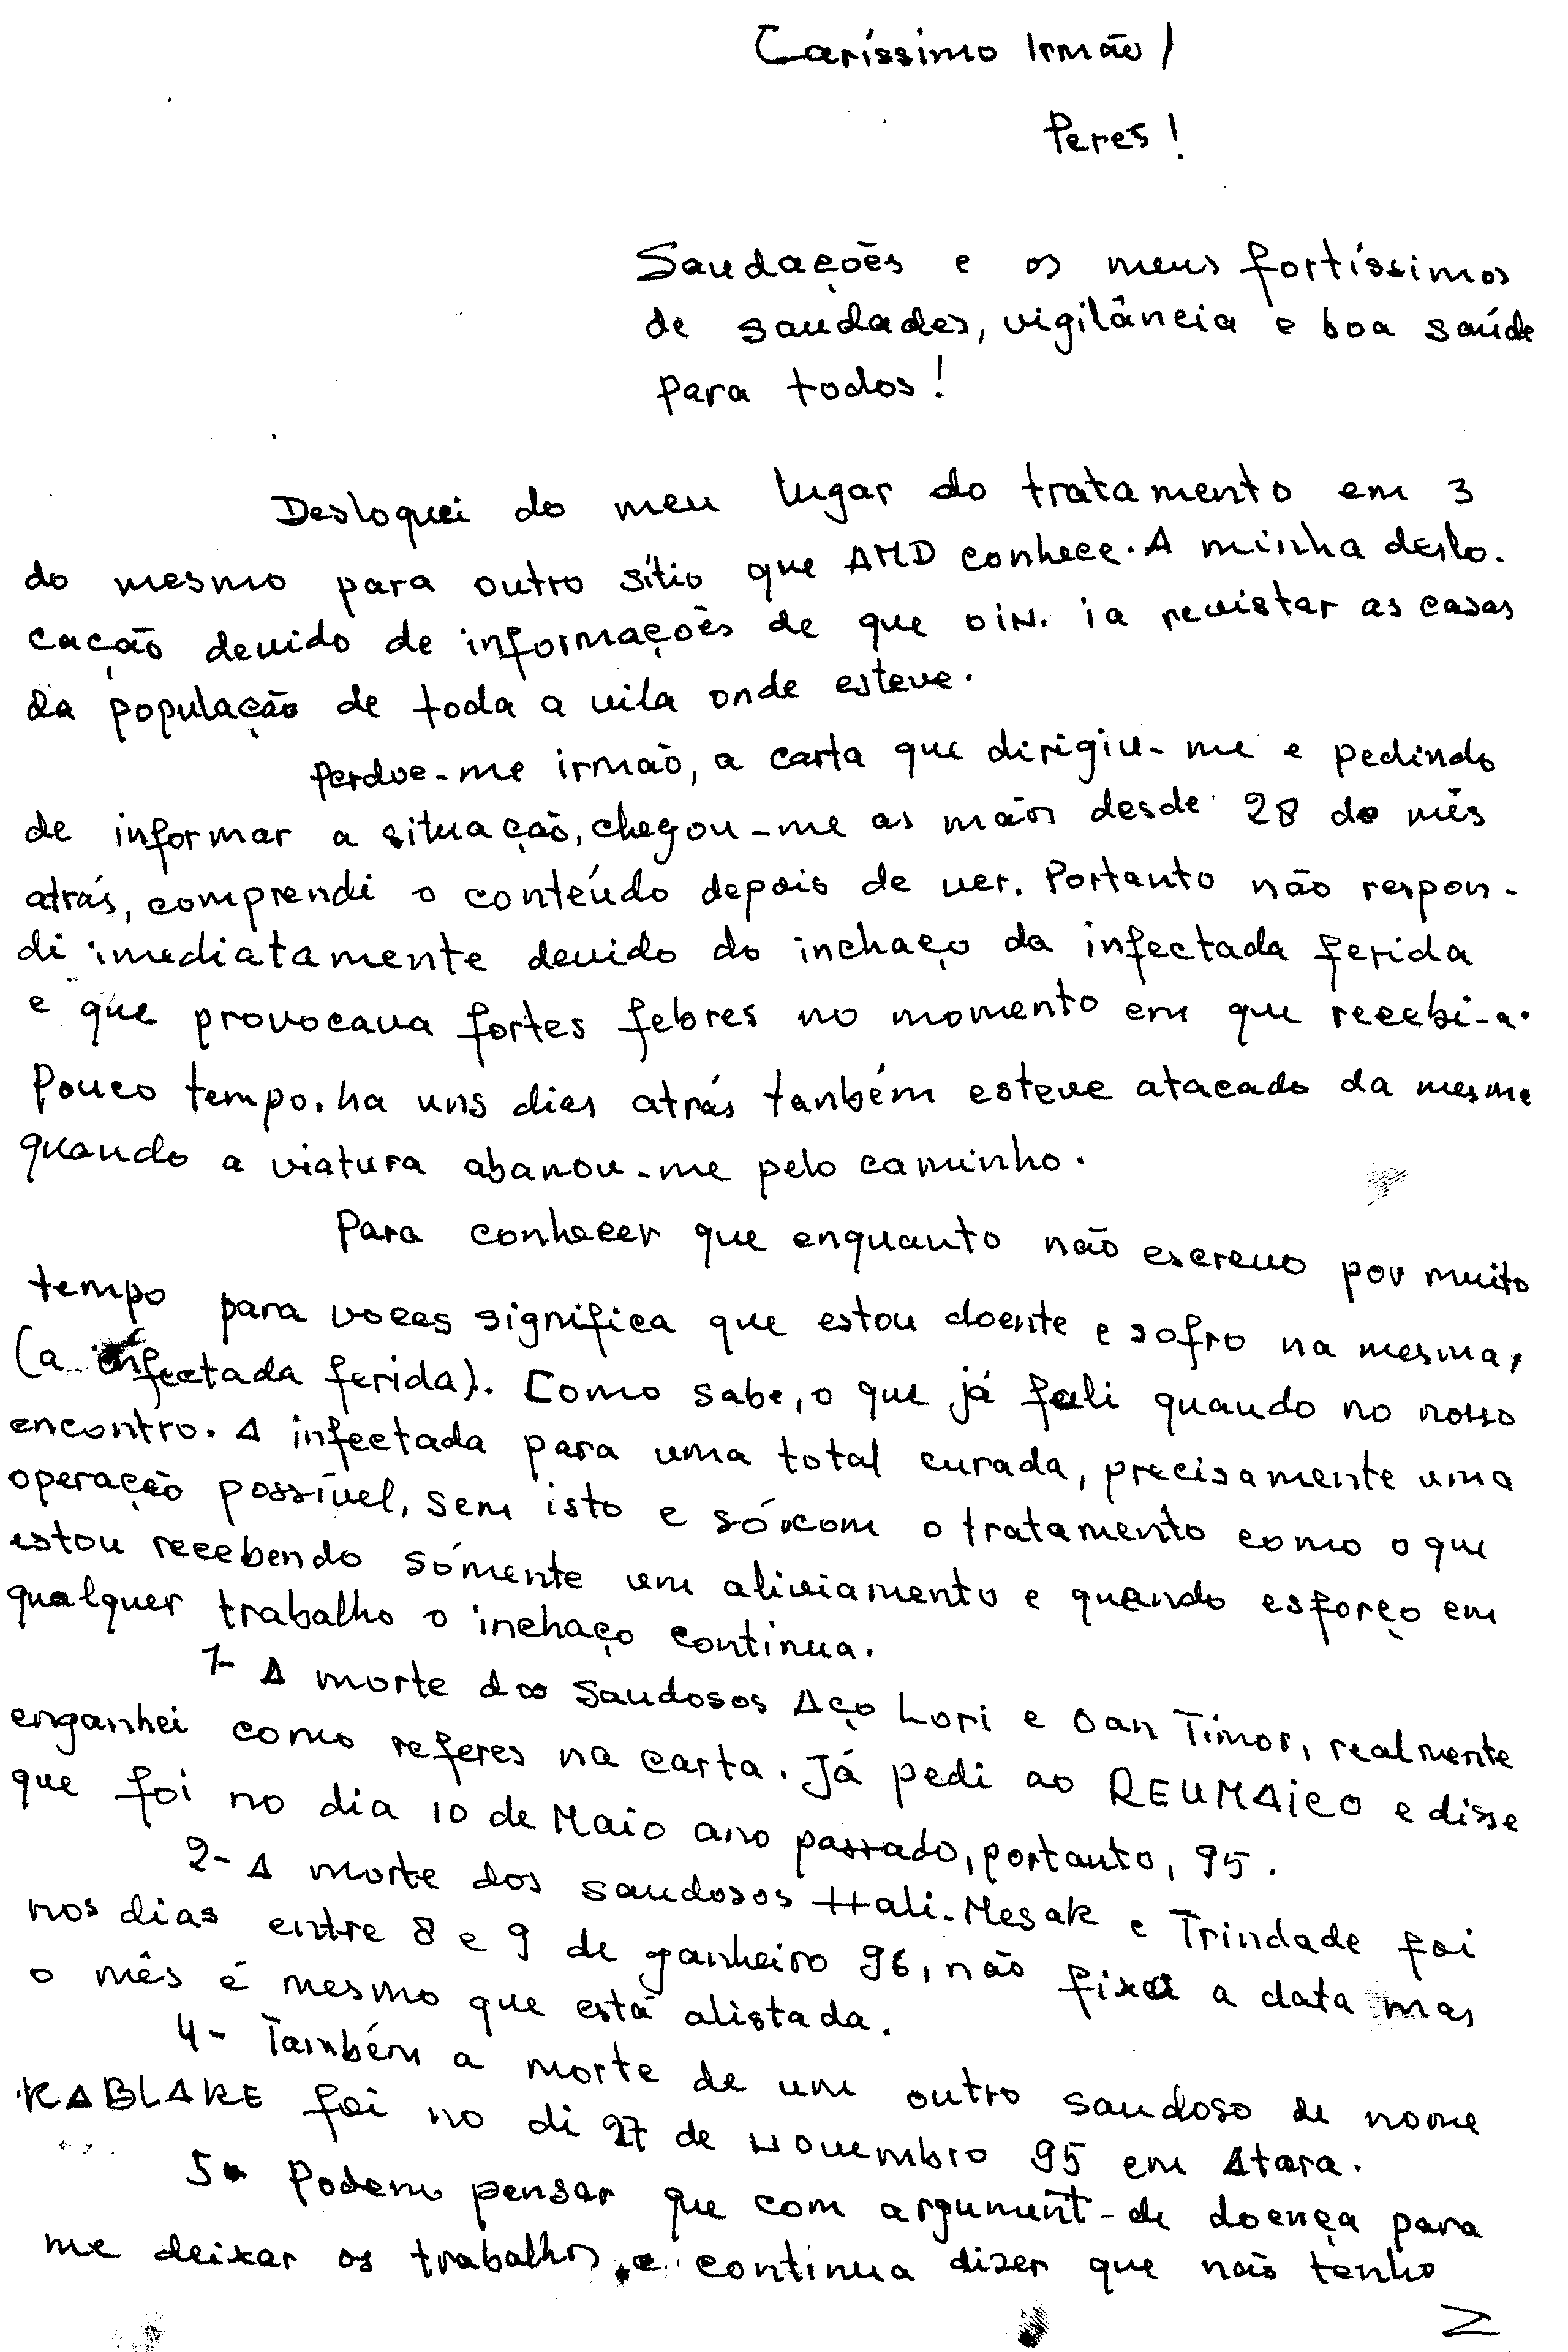 Caríssimo Irmão /
Peres !
Saudações e os meus fortíssimos
de saudades, vigilância e boa saúde
para todos !
Desloquei do meu lugar do tratamento em 3
do mesmo para outro sítio que AMD conhece. A minha deslo-
cação devido de informações de que o iN. ia revistar as casas
da população de toda a vila onde esteve.
Perdoe-me irmão, a carta que dirigiu-me e pedindo
de informar a situação, chegou-me as mãos desde 28 do mês
atrás, comprendi o conteúdo depois de ver. Portanto não respon-
di imediatamente devido do inchaço da infectada ferida
e que provocava fortes febres no momento em que recebi-a.
Pouco tempo. ha uns dias atrás tanbém esteve atacado da mesma
quando a viatura abanou-me pelo caminho.
Para conhecer que enquanto não escrevo por muito
tempo para voces significa que estou doente e sofro na mesma,
(a infectada ferida). Como sabe, o que já fali quando no nosso
encontro. A infectada para uma total curada, precisamente uma
operação possível, sem isto e só com o tratamento como o que
estou recebendo sómente um aliviamento e quando esforço em
qualquer trabalho o inchaço continua.
1- A morte dos saudosos Aço Lori e Oan Timor, realmente
enganhei como referes na carta. Já pedi ao REUMAiCO e disse
que foi no dia 10 de Maio ano passado, portanto, 95.
2- A morte dos saudosos Hali-Mesak e Trindade foi
nos dias entre 8 e 9 de ganheiro 96, não fixa a data mas
o mês é mesmo que está alistada.
4- Também a morte de um outro saudoso de nome
KABLAKE foi no di 27 de Novembro 95 em Atara.
5- Podem pensar que com argument-de doença para
me deixar os trabalhos e continua dizer que não tenho
2